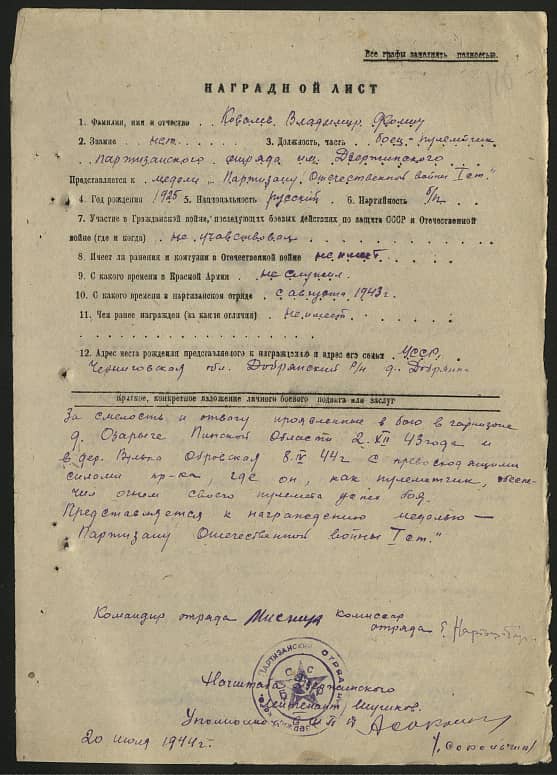 Все графы заполнять полностью.
НАГРАДНОЙ ЛИСТ
1. Фамилия, имя и отчество Ковалев Владимир Фомич
2. Звание нет. 3. Должность, часть боец-пулеметчик
партизанского отряда им. Дзержинского
Представляется к медали „Партизану Отечественной войны I ст."
4. Год рождения 1925 5. Национальность русский 6. Партийность б/п
7. Участие в Гражданской войне, последующих боевых действиях по защите СССР и Отечественной
войне (где и когда) не участвовал
8. Имеет ли ранения и контузии в Отечественной войне не имеет
9. С какого времени в Красной Армии не служил
10. С какого времени в партизанском отряде с августа 1943 г.
11. Чем ранее награжден (за какие отличия) не имеет
12. Адрес места рождения представляемого к награждению и адрес его семьи УССР,
Черниговская обл. Добрянский р/н д. Добрянка
Краткое, конкретное изложение личного боевого подвига или заслуг
За смелость и отвагу проявленные в бою в гарнизоне
д. Озарычи Пинской Области 2. XII 43 года и
в дер. Вулька Обровская 8. IV 44 г с превосходящими
силами пр-ка, где он, как пулеметчик, обеспе-
чил огнем своего пулемета успех боя.
Представляется к награждению медалью –
„Партизану Отечественной войны I ст."
Командир отряда комиссар
отряда
ПАРТИЗАНСКИЙ ОТРЯД
Начштаба Дзержинского
лейтенант
Уполномоч.
20 июля 1944 г.